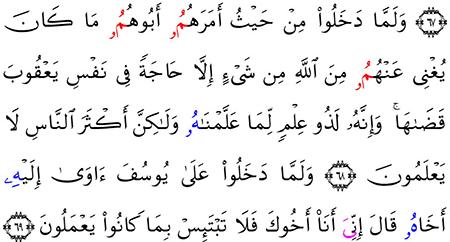 ﴿٦٧﴾ وَلَمَّا دَخَلُواْ مِنْ حَيْثُ أَمَرَهُمُۥٓ أَبُوهُمُۥ مَا كَانَ
يُغْنِى عَنْهُمُۥ مِنَ ٱللَّهِ مِن شَىْءٍ إِلَّا حَاجَةً فِى نَفْسِ يَعْقُوبَ
قَضَىٰهَا ۚ وَإِنَّهُۥ لَذُو عِلْمٍ لِّمَا عَلَّمْنَٰهُۥ وَلَٰكِنَّ أَكْثَرَ ٱلنَّاسِ لَا
يَعْلَمُونَ ﴿٦٨﴾ وَلَمَّا دَخَلُواْ عَلَىٰ يُوسُفَ ءَاوَىٰٓ إِلَيْهِۦ
أَخَاهُۥ قَالَ إِنِّىَ أَنَا۠ أَخُوكَ فَلَا تَبْتَئِسْ بِمَا كَانُواْ يَعْمَلُونَ ﴿٦٩﴾